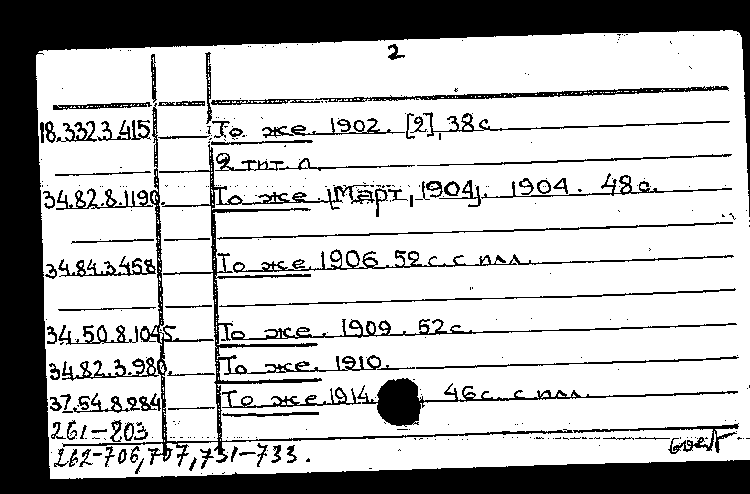 2
18.332.3.415 То же. 1902. [2], 38 с.
2 тит. л.
34.82.8.1190. То же. [Март, 1904]. 1904. 48 с.
34.84.3.458 То же. 1906. 52 с. с илл.
34.50.8.1045. То же. 1909. 52 с.
34.82.3.980. То же. 1910.
37.54.8.284 То же. 1914. 46 с. с илл.
261-203
262-706,707,731-733.